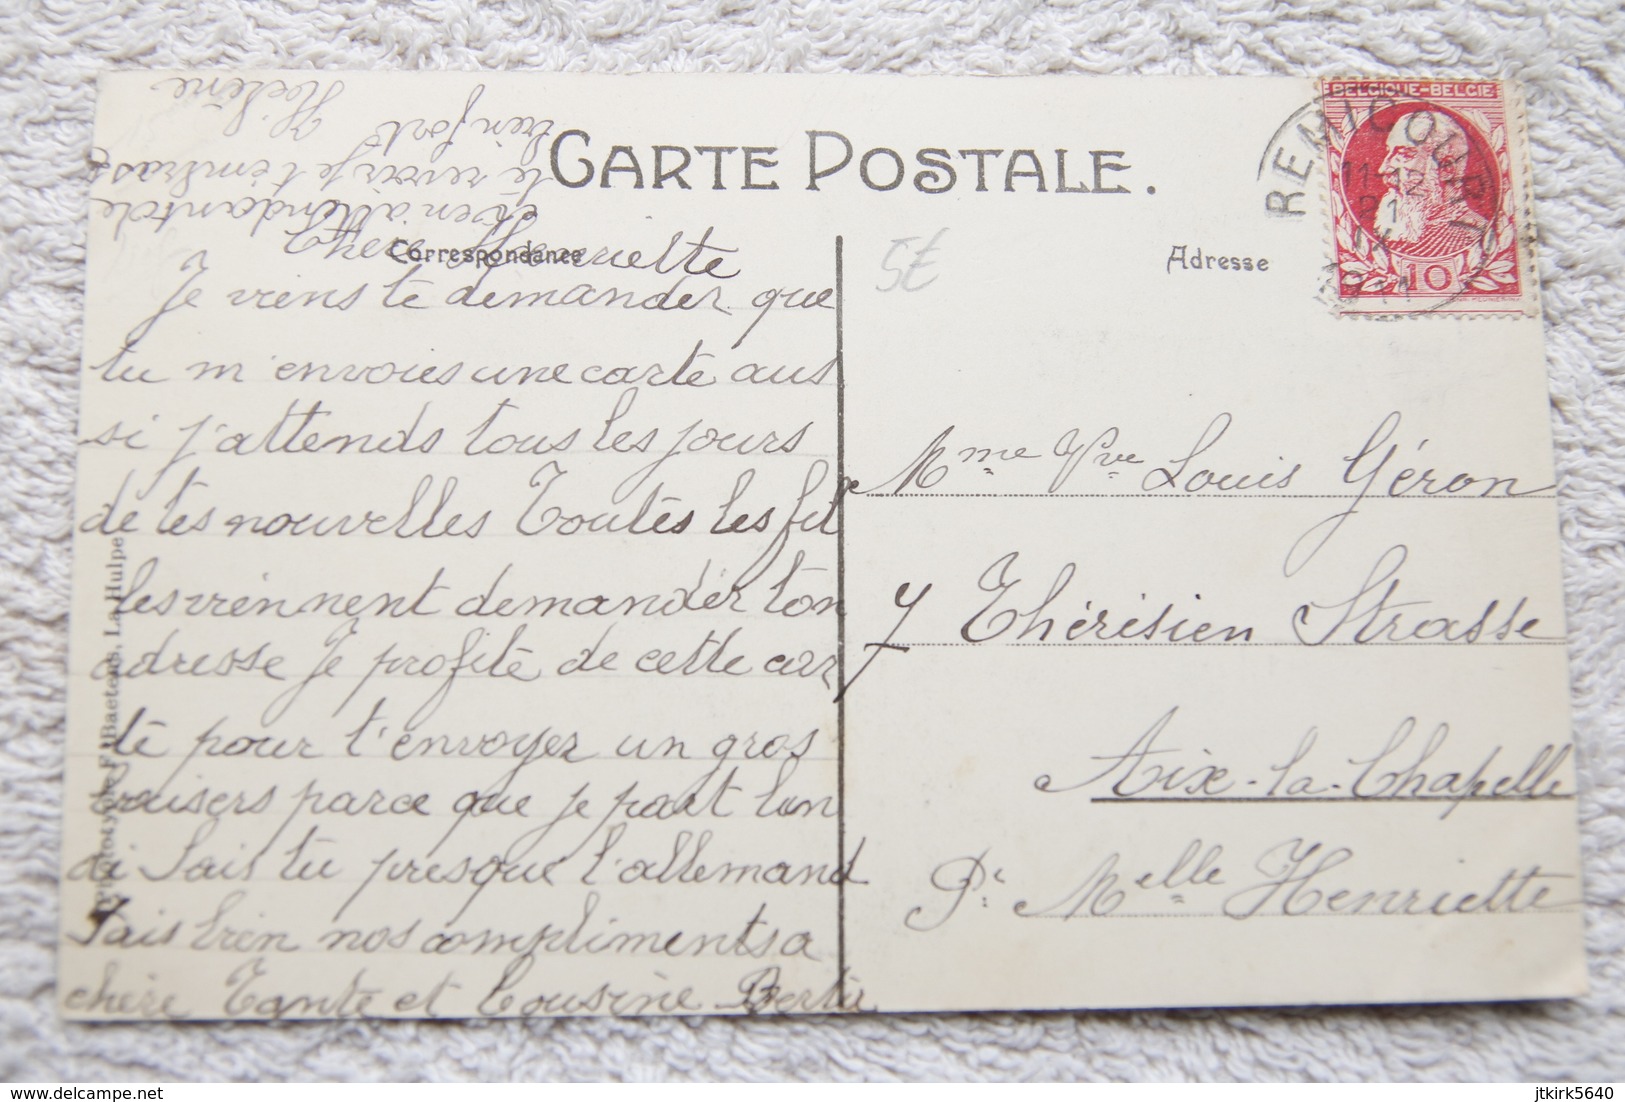 CARTE POSTALE.
Correspondance
Adresse
BELGIQUE-BELGIE
10
REMICOURT
11-12
21
1911
5€
Chère Henriette
Je viens te demander que
tu m'envoies une carte aus
si j'attends tous les jours
de tes nouvelles Toutes les fil
les viennent demander ton
adresse Je profite de cette car
te pour t'envoyer un gros
baisers parce que je part lun
di Sais tu presque l'allemand
Fais bien nos compliments a
chère Tante et Cousine Bertha
et en attendant de
te revoir je t'embrasse
bien fort
Hélène
Mme Vve Louis Géron
7 Thérésien Strasse
Aix-la-Chapelle
Pr Melle Henriette
Baetens, La Hulpe
www.delcampe.net
jtkirk5640